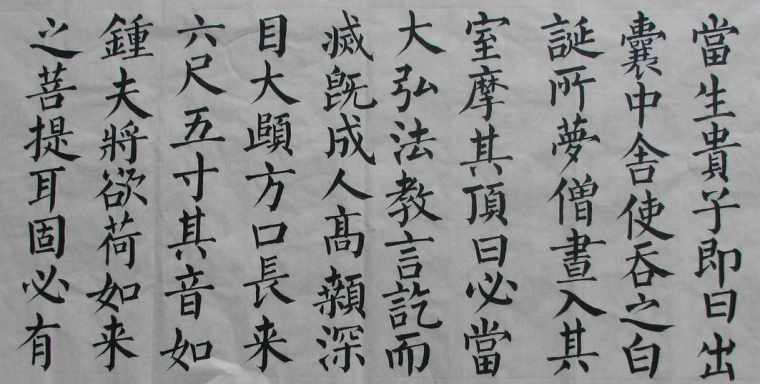 當生貴子即曰出
囊中舍使吞之白
誕所夢僧晝入其
室摩其頂曰必當
大弘法教言訖而
滅既成人高顙深
目大頤方口長来
六尺五寸其音如
鍾夫將欲荷如来
之菩提耳固必有